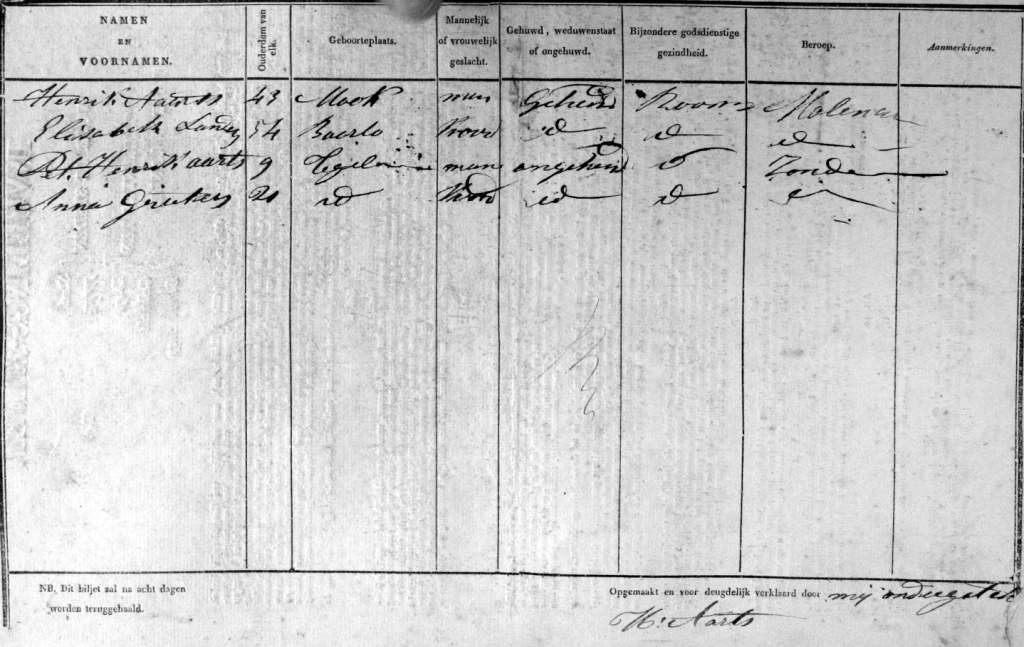 NAMEN EN VOORNAMEN. Ouderdom van elk. Geboorteplaats. Mannelijk of vrouwelijk geslacht. Gehuwd, weduwenstaat of ongehuwd. Bijzondere godsdienstige gezindheid. Beroep. Aanmerkingen.
Henrik Aarts 43 Mook man Gehuwd Rooms Molenaar
Elisabeth 54 Baerlo vrouw id id id
Pt. Henri aarts 9 Tegelen man ongehuwd id Zonder
Anna 20 id vrouw id id id
NB. Dit biljet zal na acht dagen
worden teruggehaald.
Opgemaakt en voor deugdelijk verklaard door mij ondergetek
H: Aarts